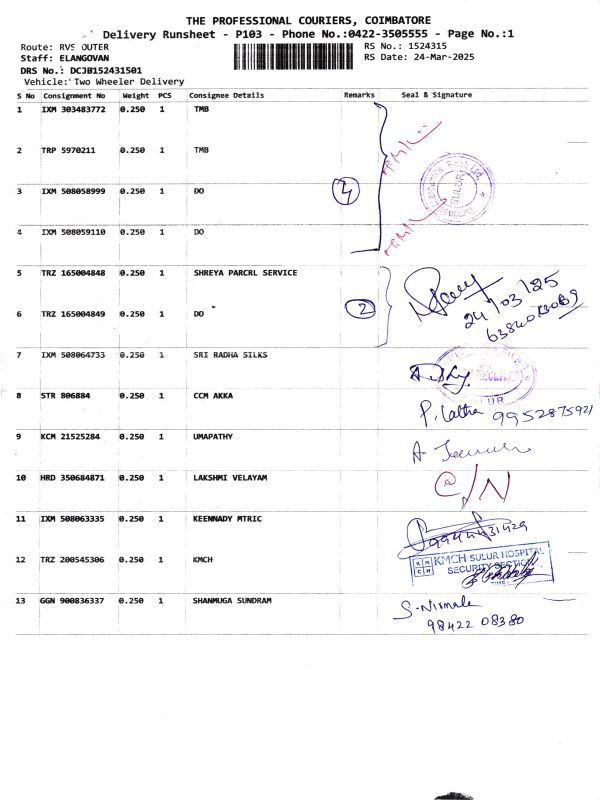 THE PROFESSIONAL COURIERS, COIMBATORE
Delivery Runsheet - P103 - Phone No.:0422-3505555 - Page No.:1
Route: RVS OUTER RS No.: 1524315
Staff: ELANGOVAN RS Date: 24-Mar-2025
DRS No.: DCJB152431501
Vehicle: Two Wheeler Delivery
S No Consignment No Weight PCS Consignee Details Remarks Seal & Signature
1 IXM 303483772 0.250 1 TMB
2 TRP 5970211 0.250 1 TMB
3 IXM 508058999 0.250 1 DO 4 SULUR
4 IXM 508059110 0.250 1 DO
5 TRZ 165004848 0.250 1 SHREYA PARCRL SERVICE
24/03/25
6 TRZ 165004849 0.250 1 DO 2
7 IXM 508064733 0.250 1 SRI RADHA SILKS
SULUR
8 STR 806884 0.250 1 CCM AKKA P. Latha 9952875921
9 KCM 21525284 0.250 1 UMAPATHY
10 HRD 350684871 0.250 1 LAKSHMI VELAYAM C/N
11 IXM 508063335 0.250 1 KEENNADY MTRIC 9944431429
12 TRZ 200545306 0.250 1 KMCH KMCH SULUR HOSPITAL
SECURITY SECTION
TIME
13 GGN 900836337 0.250 1 SHANMUGA SUNDRAM S. Nirmala
98422 08380